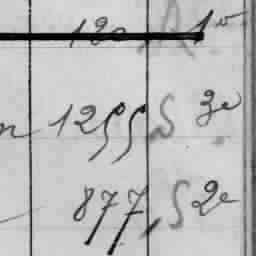 120 1º
n 1255 S 3e
877, S 2e